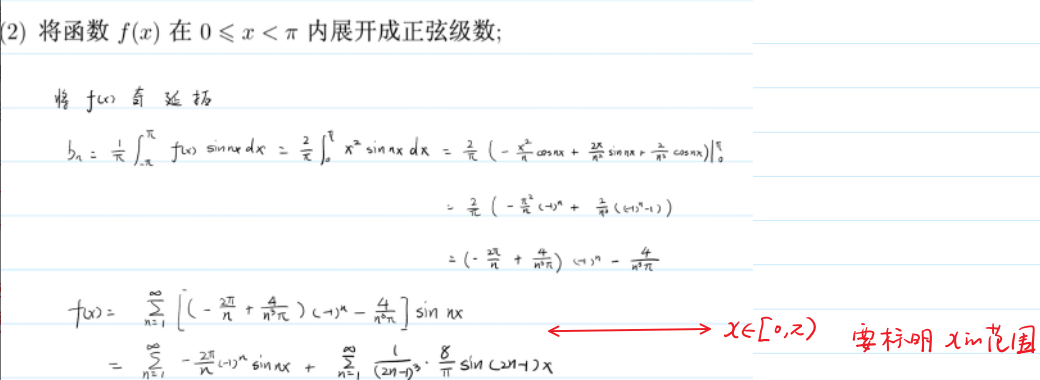 (2) 将函数 f(x) 在 0 ⩽ x < π 内展开成正弦级数;
将 f(x) 奇 延 拓
bₙ = 1/π ∫_{-π}^{π} f(x) sin nx dx = 2/π ∫_0^π x² sin nx dx = 2/π ( - x²/n cos nx + 2x/n² sin nx + 2/n³ cos nx )|_0^π
= 2/π ( - π²/n (-1)ⁿ + 2/n³ ((-1)ⁿ-1) )
= ( - 2π/n + 4/n³π ) (-1)ⁿ - 4/n³π
f(x) = ∑_{n=1}^∞ [ ( - 2π/n + 4/n³π ) (-1)ⁿ - 4/n³π ] sin nx
x∈[0,π) 要标明 x的范围
= ∑_{n=1}^∞ - 2π/n (-1)ⁿ sin nx + ∑_{n=1}^∞ 1/(2n-1)³ · 8/π sin (2n-1)x